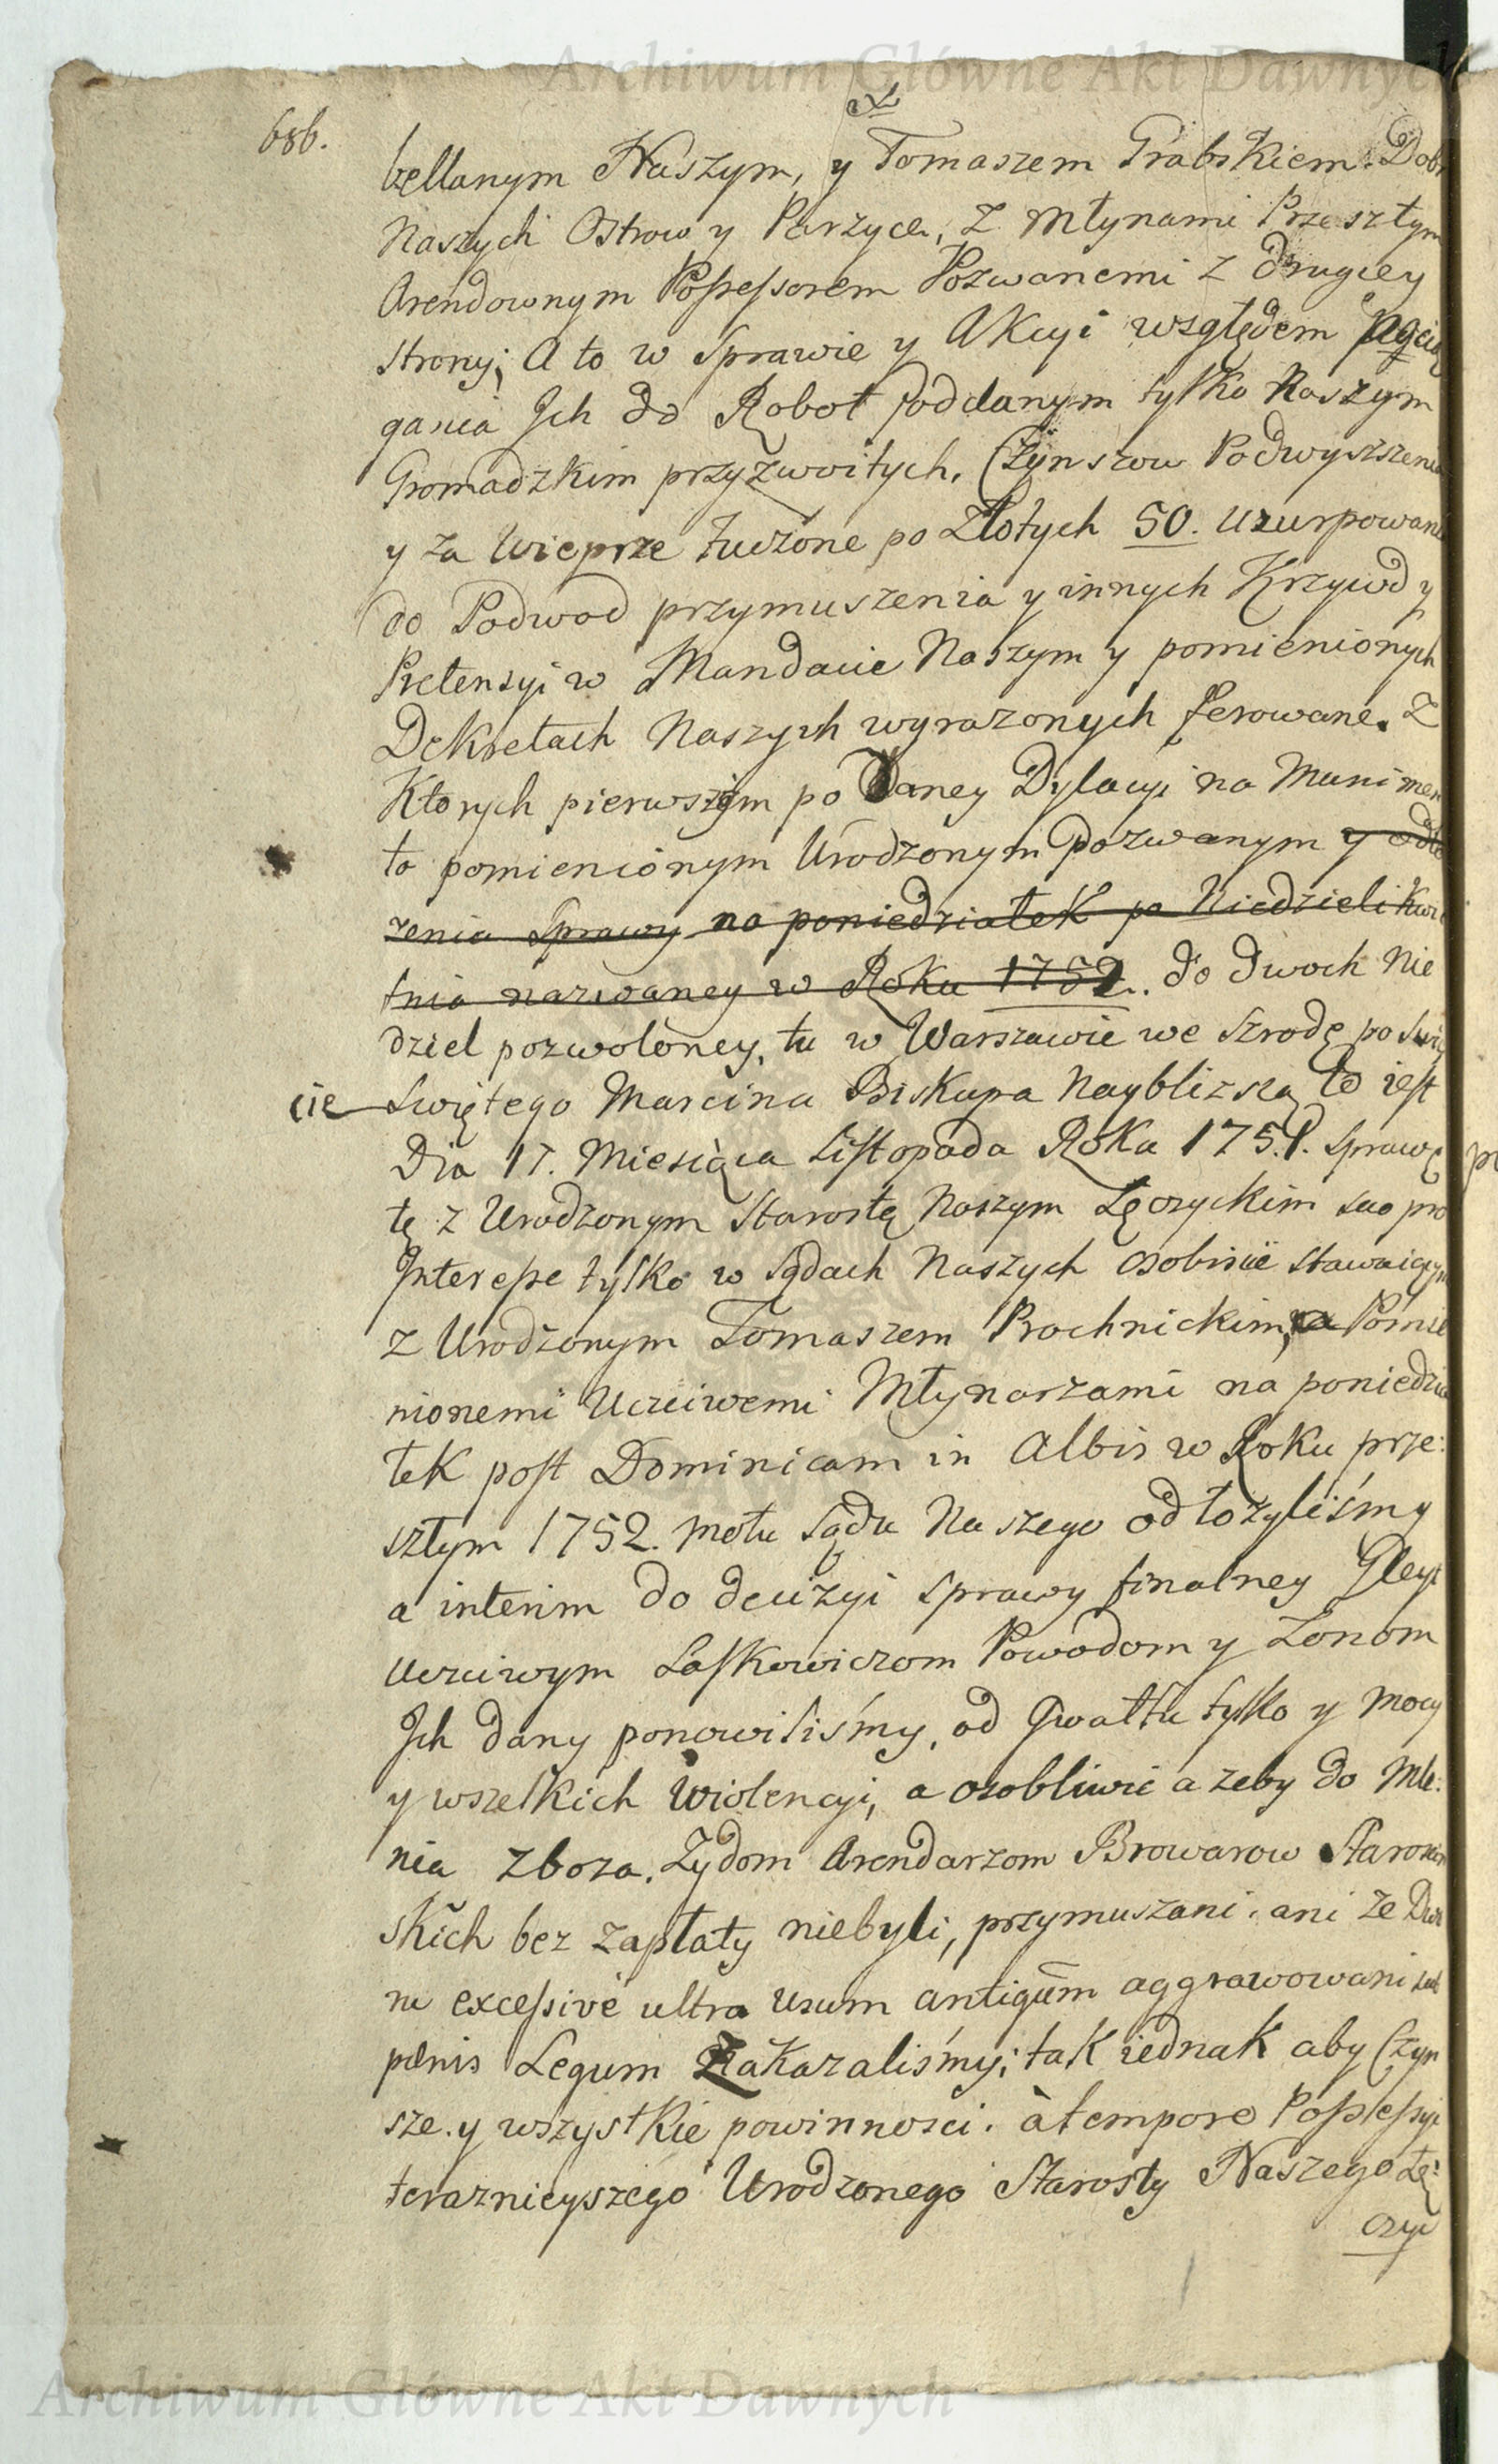 Archiwum Główne Akt Dawnych
686.
bellanym Naszym, y Tomaszem Grabskiem Dobr
Naszych Ostrow y Parzyce, z Młynami Przeszłym
Arendownym Possessorem Pozwanemi z drugiey
strony; A to w Sprawie y Akcyi względem pocią
gania Ich do Robot Poddanym tylko Naszym
Gromadzkim przyzwoitych, Czynszow Podwyższenia
y za Wieprze tuczone po Złotych 50. uzurpowania
do Podwod przymuszenia y innych Krzywd y
Pretensyi w Mandacie Naszym y pomienionych
Dekretach Naszych wyrazonych ferowane. Z
Ktorych pierwszym po Daney Dylacyi na Munimen
ta pomienionym Urodzonym pozwanym y odło
zenia Sprawy na poniedziałek po Niedzieli Kwie
tnia nazwaney w Roku 1752. do dwoch Nie
dziel pozwoloney, tu w Warszawie we Szrodę po Swię
cie Swiętego Marcina Biskupa Nayblizszą to iest
Dia 17. Miesiąca Listopada Roku 1751. Sprawę
tę z Urodzonym Starostą Naszym Łęczyckim suo pro
Interesse tylko w Sądach Naszych osobiscie stawaiącym
z Urodzonym Tomaszem Prochnickim, a Pomie
nionemi Uczciwemi Młynarzami na poniedzia
łek post Dominicam in Albis w Roku prze:
szłym 1752. motu Sądu Naszego odłozyliśmy
a interim do decizyi sprawy finalney Gleyt
Uczciwym Laskowiczom Powodom y Zonom
Ich dany ponowiliśmy, od Gwałtu tylko y mocy
y wszelkich wiolencyi, a osobliwie a zeby do Mle:
nia zboza. Zydom Arendarzom Browarow Starościn
skich bez zapłaty niebyli, przymuszani. ani ze Dwo
ru excessivè ultra usum antiqūm aggrawowani sub
pænis Legum Zakazaliśmy; tak iednak aby Czyn
sze. y wszystkie powinnosci. à tempore Possessyi
teraznieyszego Urodzonego Starosty Naszego Łę:
czyc
Archiwum Główne Akt Dawnych